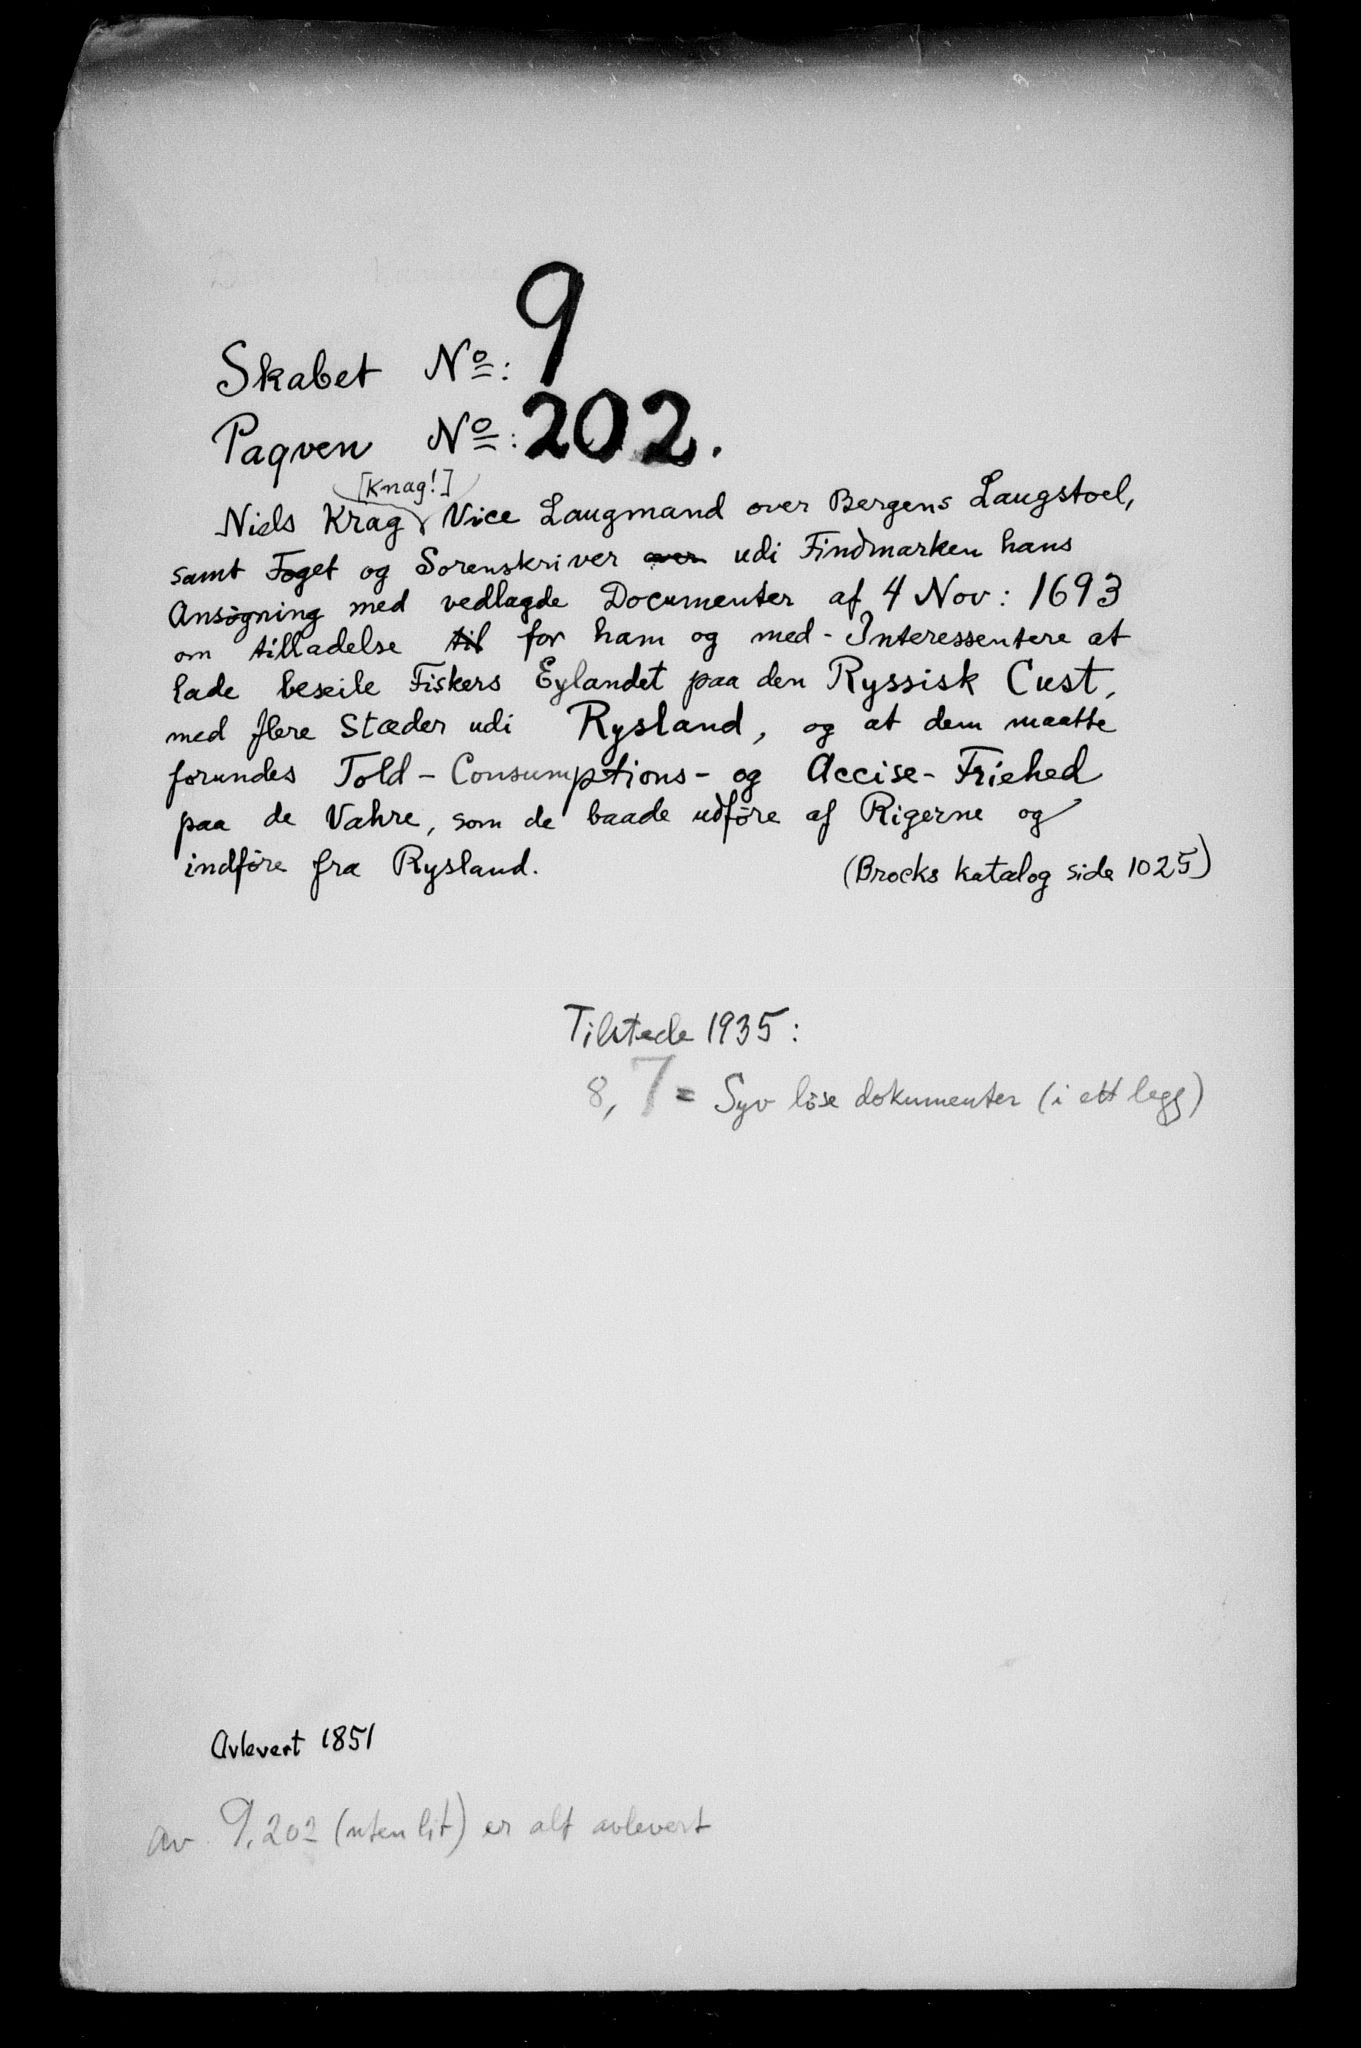 Skabet No: 9
Paqven No: 202.
[Knag!]
Niels Krag Vice Laugmand over Bergens Laugstoel,
samt Foget og Sorenskriver over udi Findmarken hans
Ansøgning med vedlagde Documenter af 4 Nov: 1693
om tilladelse til for ham og med-Interessentere at
lade beseile Fiskers Eylandet paa den Ryssisk Cust,
med flere Stæder udi Rysland, og at dem maatte
forundes Told-Consumptions- og Accise-Friehed
paa de Vahre, som de baade udføre af Rigerne og
indføre fra Rysland.
(Brocks katalog side 1025)
Tilstede 1935:
8, 7 = Syv löse dokumenter (i ett legg)
Avlevert 1851
Av 9.202 (uten lit) er alt avlevert